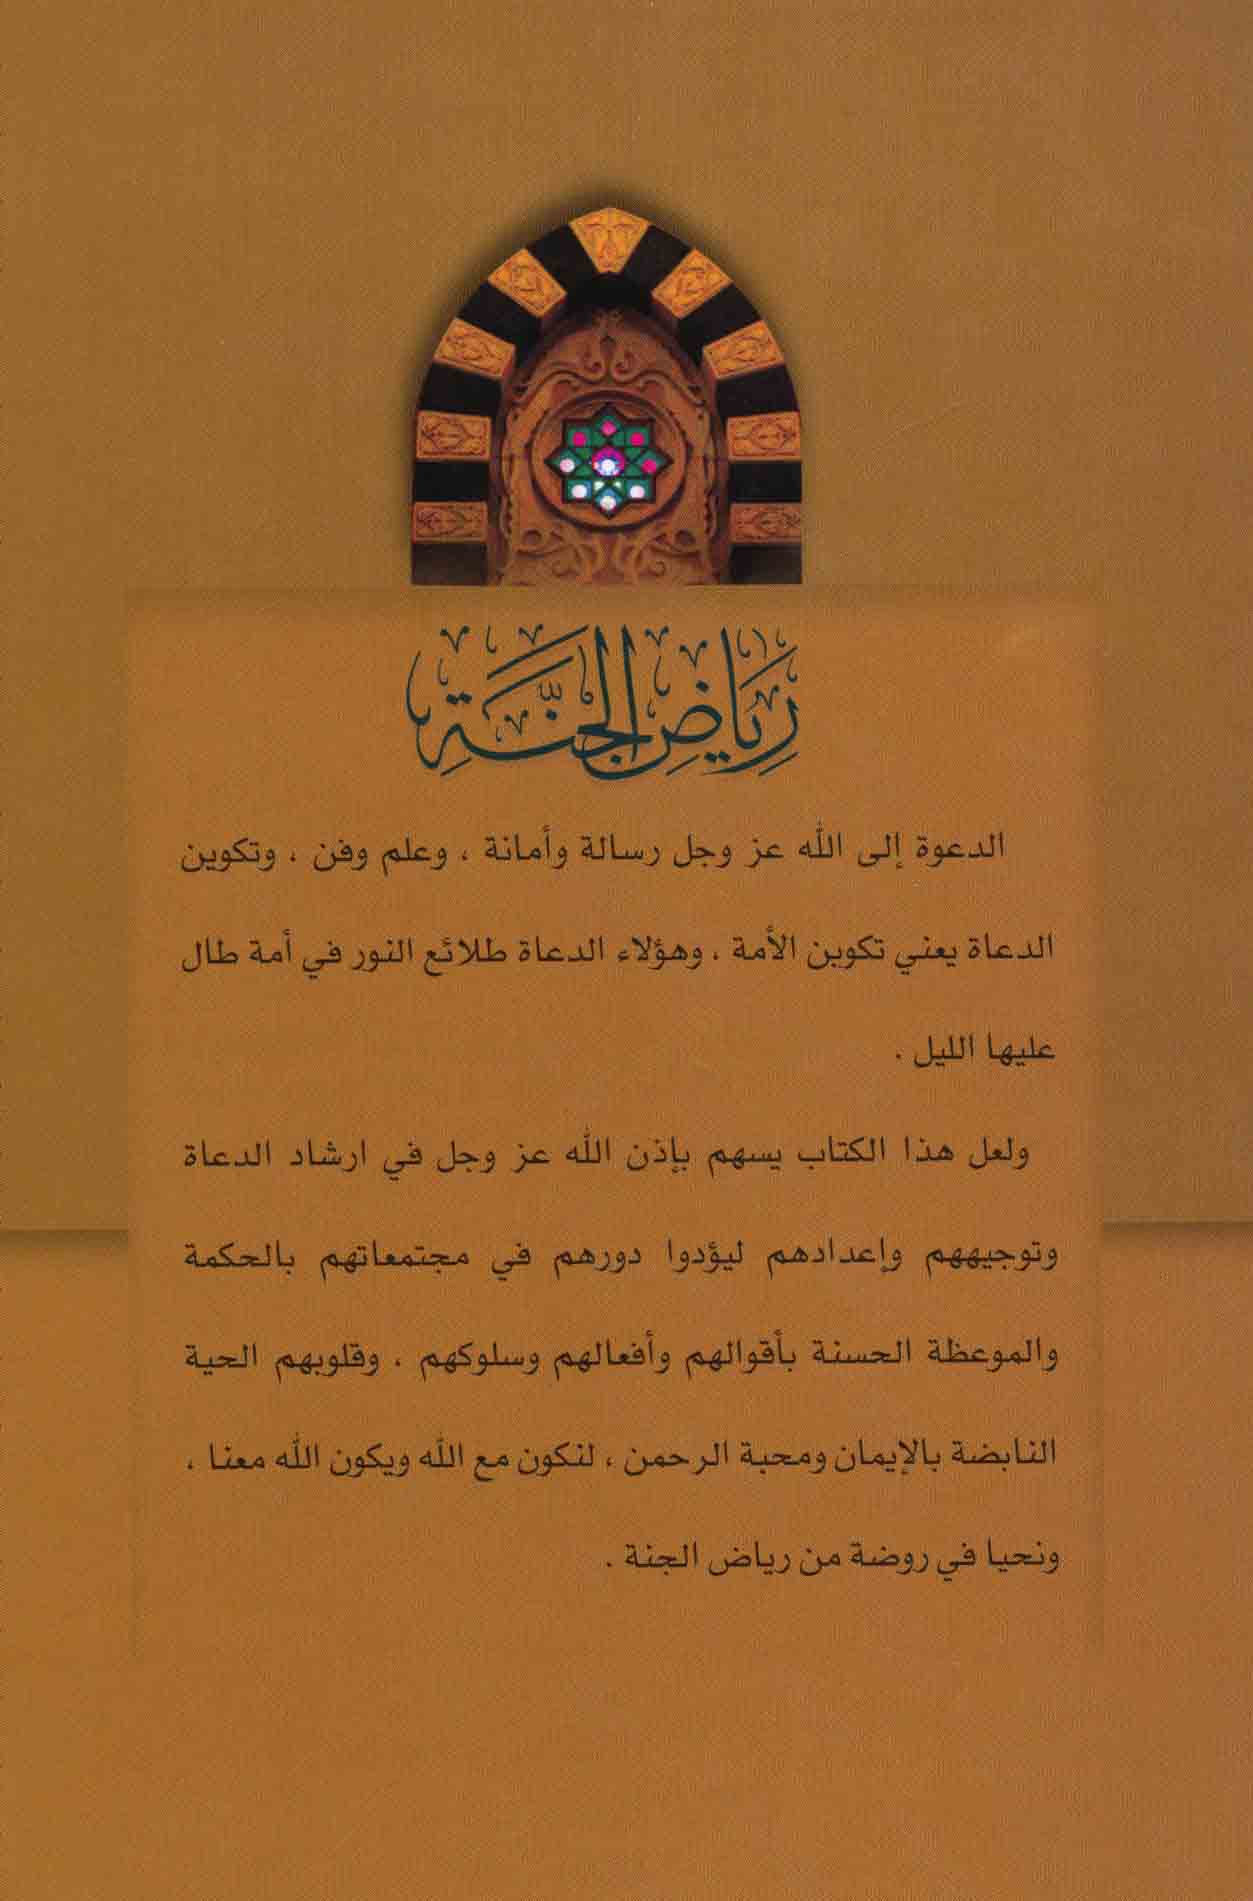 رياض الجنة
الدعوة إلى الله عز وجل رسالة وأمانة ، وعلم وفن ، وتكوين
الدعاة يعني تكوين الأمة ، وهؤلاء الدعاة طلائع النور في أمة طال
عليها الليل .
ولعل هذا الكتاب يسهم بإذن الله عز وجل في ارشاد الدعاة
وتوجيههم وإعدادهم ليؤدوا دورهم في مجتمعاتهم بالحكمة
والموعظة الحسنة بأقوالهم وأفعالهم وسلوكهم ، وقلوبهم الحية
النابضة بالإيمان ومحبة الرحمن ، لنكون مع الله ويكون الله معنا ،
ونحيا في روضة من رياض الجنة .